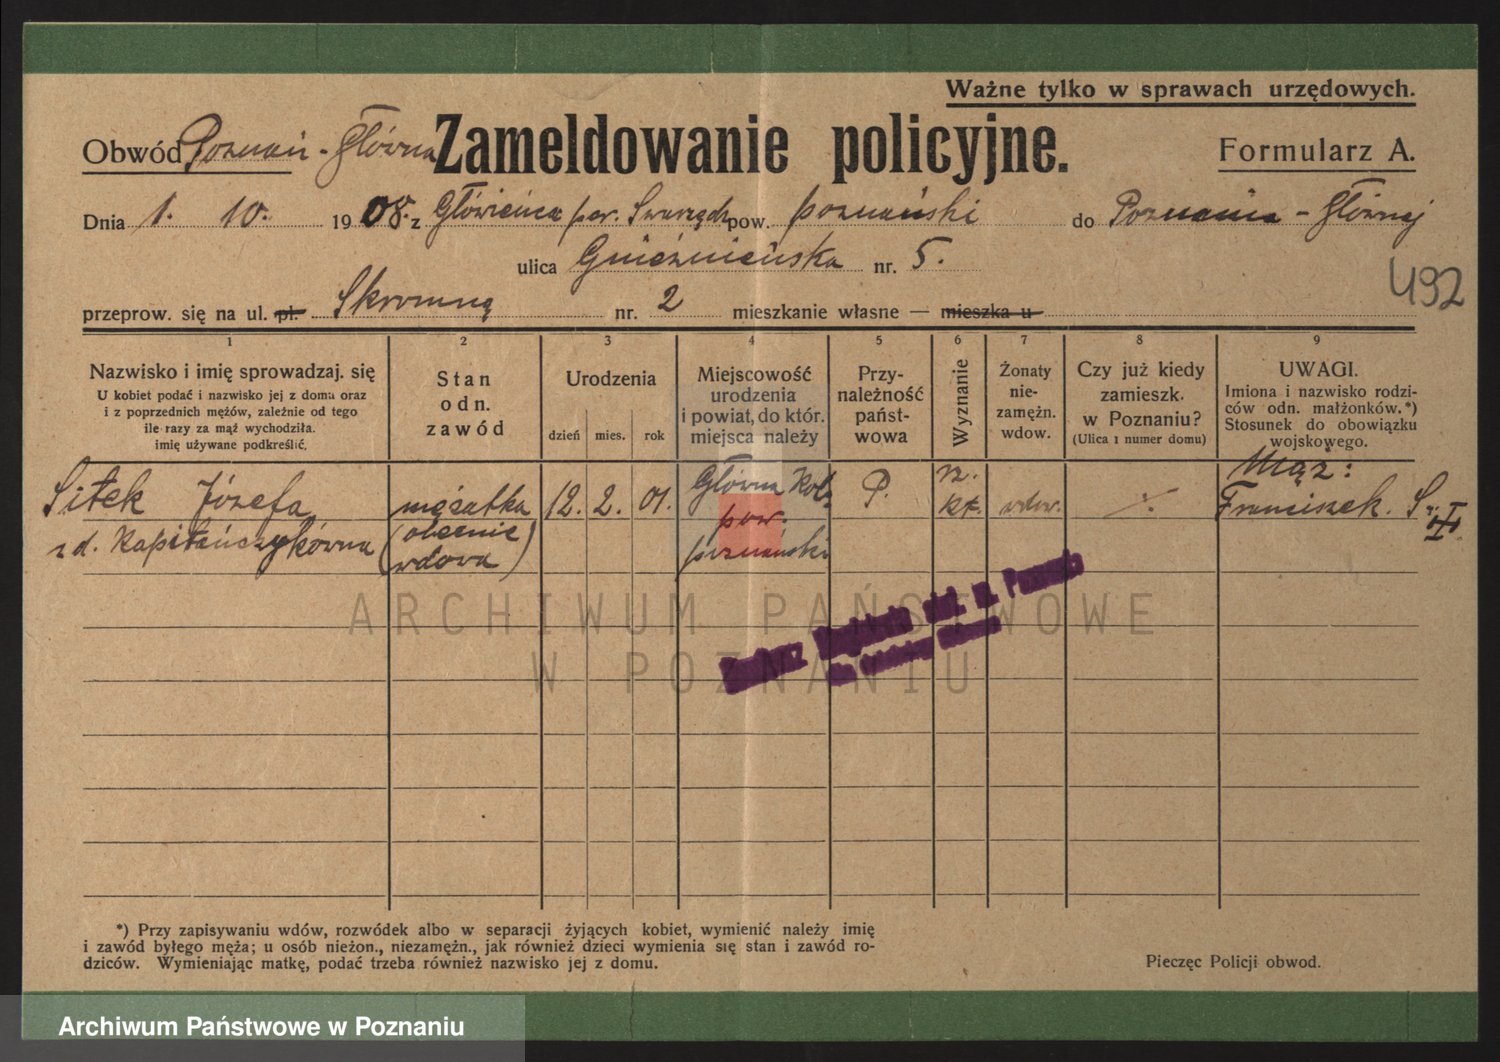 Ważne tylko w sprawach urzędowych.
Obwód Poznań - Główna Zameldowanie policyjne. Formularz A.
Dnia 1. 10. 1908. z Główieńca por. Swarzędz pow. poznański do Poznania - Głównej
ulica Gnieźnieńska nr. 5.
492
przeprow. się na ul. pl. Skromną nr. 2 mieszkanie własne — mieszka u
1 2 3 4 5 6 7 8 9
Nazwisko i imię sprowadzaj. się
U kobiet podać i nazwisko jej z domu oraz
i z poprzednich mężów, zależnie od tego
ile razy za mąż wychodziła.
imię używane podkreślić.
Stan
odn.
zawód
Urodzenia
dzień mies. rok
Miejscowość
urodzenia
i powiat, do któr.
miejsca należy
Przy-
należność
państ-
wowa
Wyznanie
Żonaty
nie-
zamężn.
wdow.
Czy już kiedy
zamieszk.
w Poznaniu?
(Ulica i numer domu)
UWAGI.
Imiona i nazwisko rodzi-
ców odn. małżonków.*)
Stosunek do obowiązku
wojskowego.
Sitek Józefa
z d. Kapitańczykówna
mężatka
(obecnie
wdowa)
12. 2. 01.
Główna
pow.
poznański
P.
rz.
kt.
wdow.
Mąż:
Franciszek. S
ARCHIWUM PAŃSTWOWE
W POZNANIU
*) Przy zapisywaniu wdów, rozwódek albo w separacji żyjących kobiet, wymienić należy imię
i zawód byłego męża; u osób nieżon., niezamężn., jak również dzieci wymienia się stan i zawód ro-
dziców. Wymieniając matkę, podać trzeba również nazwisko jej z domu.
Pieczęc Policji obwod.
Archiwum Państwowe w Poznaniu